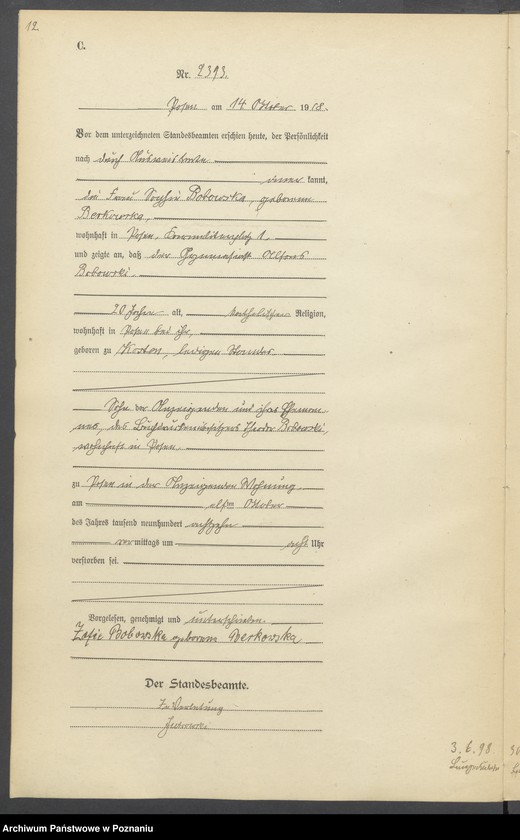 12.
C.
Nr. 2393.
Posen am 14 Oktober 1918.
Vor dem unterzeichneten Standesbeamten erschien heute, der Persönlichkeit
nach durch Ausweiskarte
kannt,
die Frau Sophie Bobowska, geborene
Berkowska,
wohnhaft in Posen, 1,
und zeigte an, daß der Gymnasiast Alfons
Bobowski
20 Jahre alt, katholischer Religion,
wohnhaft in Posen bei ihr,
geboren zu Kosten, ledigen Standes
Sohn der Anzeigenden und ihres Eheman
nes, des Buchdruckereibesitzers Theodor Bobowski,
wohnhaft in Posen
zu Posen in der Anzeigenden Wohnung
am elften Oktober
des Jahres tausend neunhundert achtzehn
vormittags um acht Uhr
verstorben sei.
Vorgelesen, genehmigt und unterschrieben
Zofie Bobowska geborene Berkowska
Der Standesbeamte.
In Vertretung
3.6.98.
Archiwum Państwowe w Poznaniu